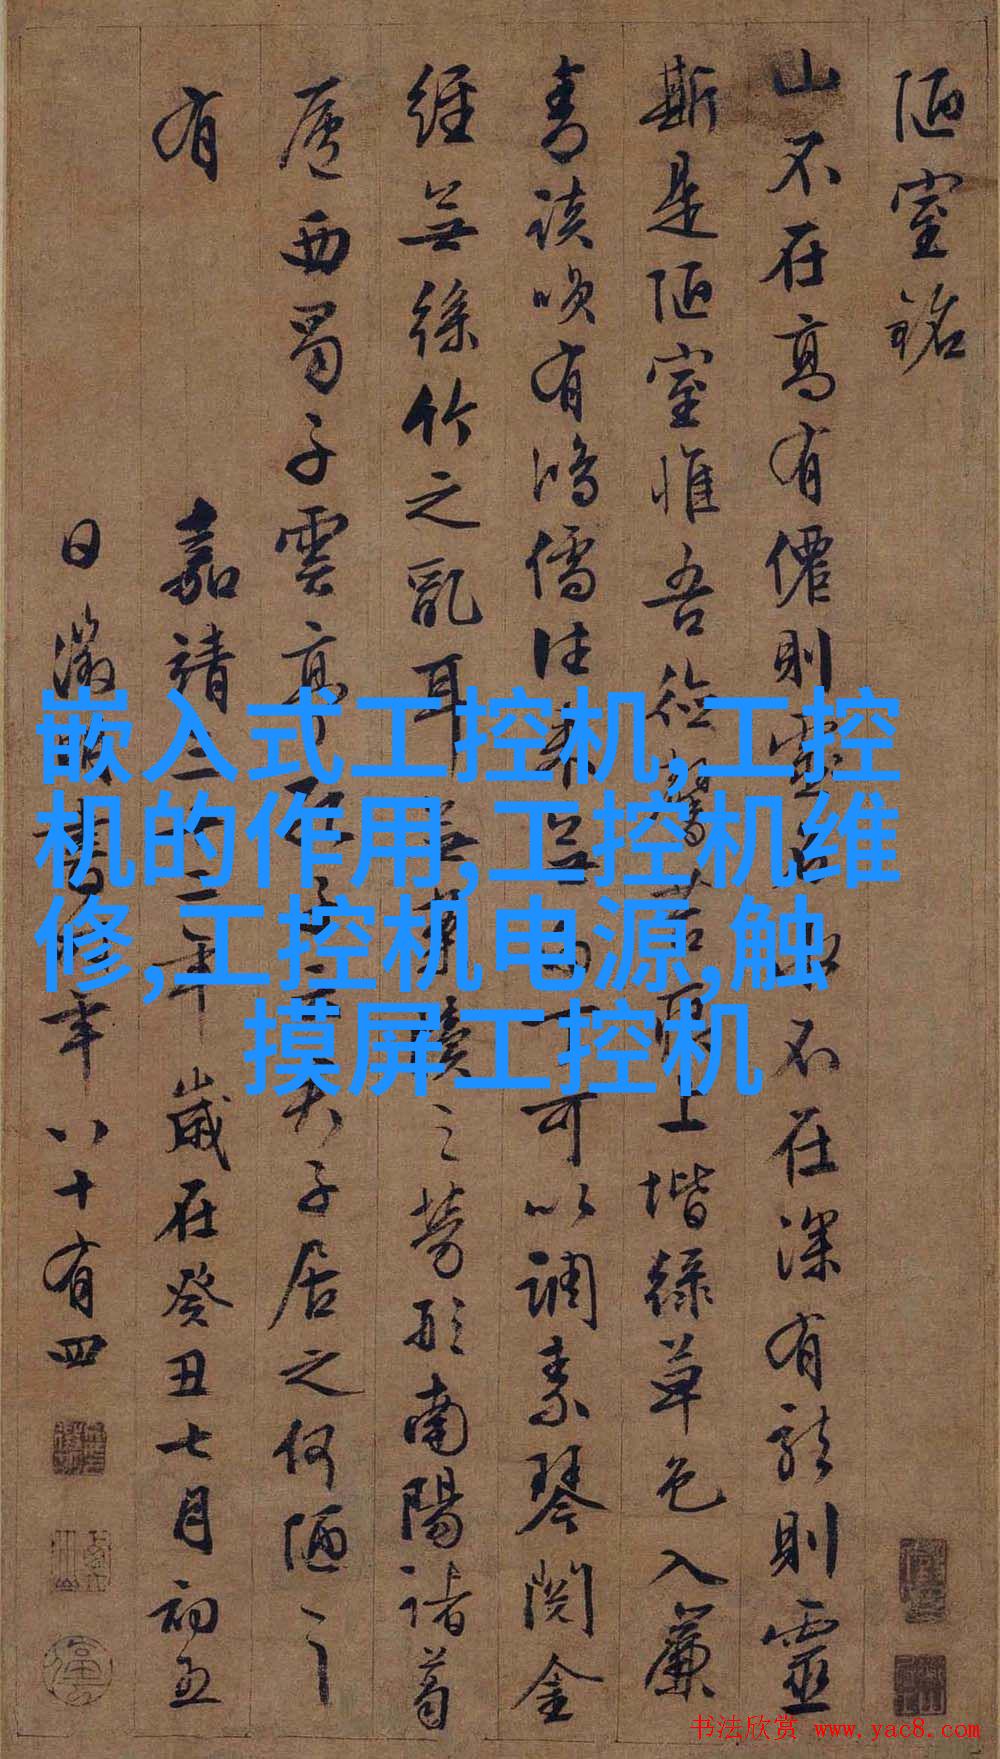 陋室銘
山不在高有僊則靈 不在深有龍則靈
斯是陋室惟吾德馨苔 上堦綠草色入簾
青談咲有鴻儒往來 丁可以調素琴閱金
經無絲竹之亂耳無案牘之勞形南陽諸葛
廬西蜀子雲亭孔子 君子居之何陋之
有
嘉靖三十二年歲在癸丑七月初五
日徵明書時年八十有四
嵌入式工控机,工控
机的作用,工控机维
修,工控机电源,触
摸屏工控机
书法欣赏 www.yac8.com